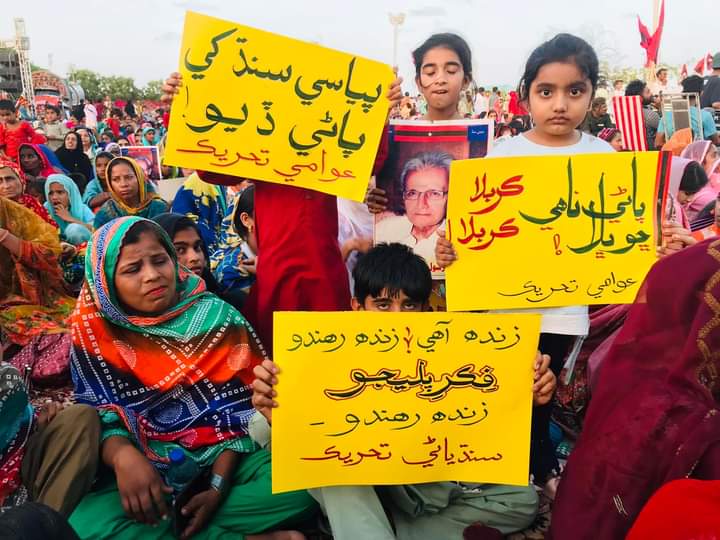 پياسي سنڌ کي
پاڻي ڏيو!
عوامي تحريڪ
ڪربلا
ڪربلا
پاڻي ناهي
ڇو ڀلا!
عوامي تحريڪ
زنده آهي! زنده رهندو
فڪر پليجو
زنده رهندو -
سنڌياڻي تحريڪ